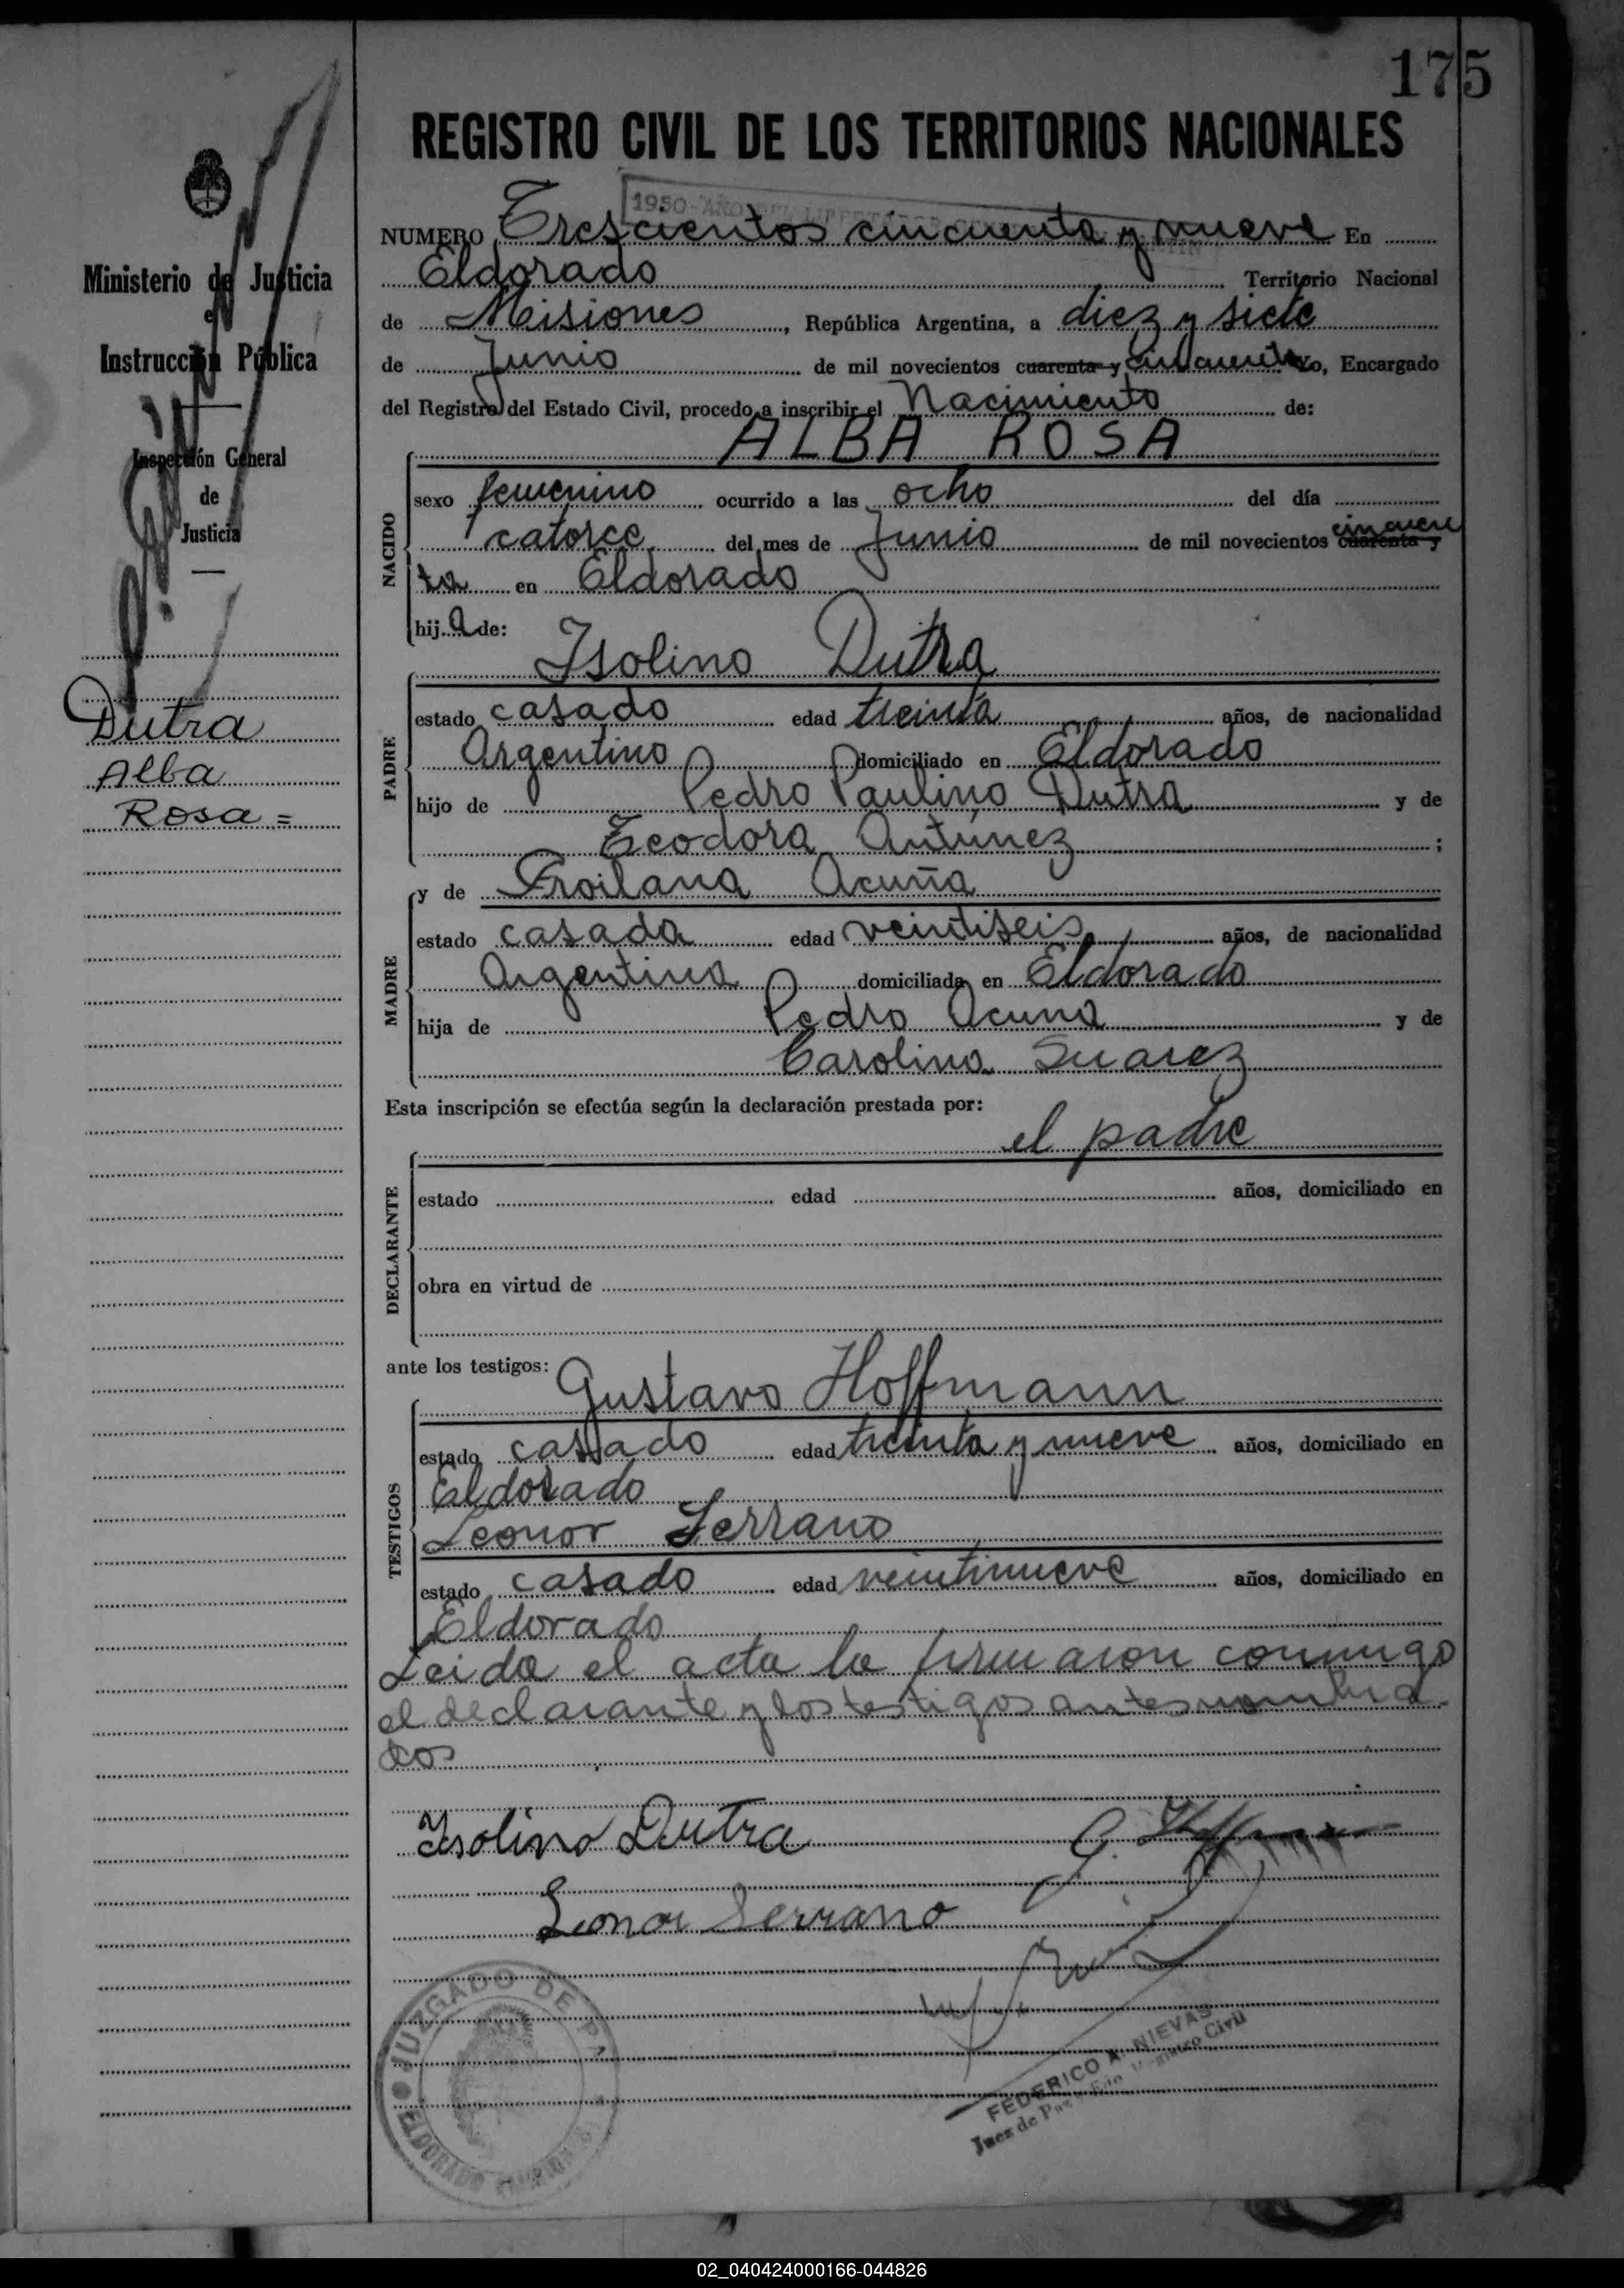 175
REGISTRO CIVIL DE LOS TERRITORIOS NACIONALES
1950-AÑO DEL LIBERTADOR GENERAL
NUMERO Trescientos cincuenta y nueve En
Eldorado Territorio Nacional
de Misiones, República Argentina, a diez y siete
de Junio de mil novecientos cuarenta y cincuenta Yo, Encargado
del Registro del Estado Civil, procedo a inscribir el Nacimiento de:
ALBA ROSA
NACIDO
sexo femenino ocurrido a las ocho del día
catorce del mes de Junio de mil novecientos cuarenta y cincuen
ta en Eldorado
hij a de:
Isolino Dutra
PADRE
estado casado edad treinta años, de nacionalidad
Argentino domiciliado en Eldorado
hijo de Pedro Paulino Dutra y de
Teodora Antunez ;
y de Froilana Acuña
MADRE
estado casada edad veintiseis años, de nacionalidad
Argentina domiciliada en Eldorado
hija de Pedro Acuna y de
Carolina Suarez
Esta inscripción se efectúa según la declaración prestada por:
el padre
DECLARANTE
estado edad años, domiciliado en
obra en virtud de
ante los testigos:
Gustavo Hoffmann
TESTIGOS
estado casado edad treinta y nueve años, domiciliado en
Eldorado
Leonor Serrano
estado casado edad veintinueve años, domiciliado en
Eldorado
Leida el acta la firmaron conmigo
el declarante y los testigos antes nombra-
dos
Isolino Dutra
G. Hoffmann
Leonor Serrano
JUZGADO DE P
ELDORADO
FEDERICO A. NIEVAS
Juez de Paz Registro Civil
Ministerio de Justicia
e
Instrucción Pública
Inspección General
de
Justicia
Dutra
Alba
Rosa =
02_040424000166-044826